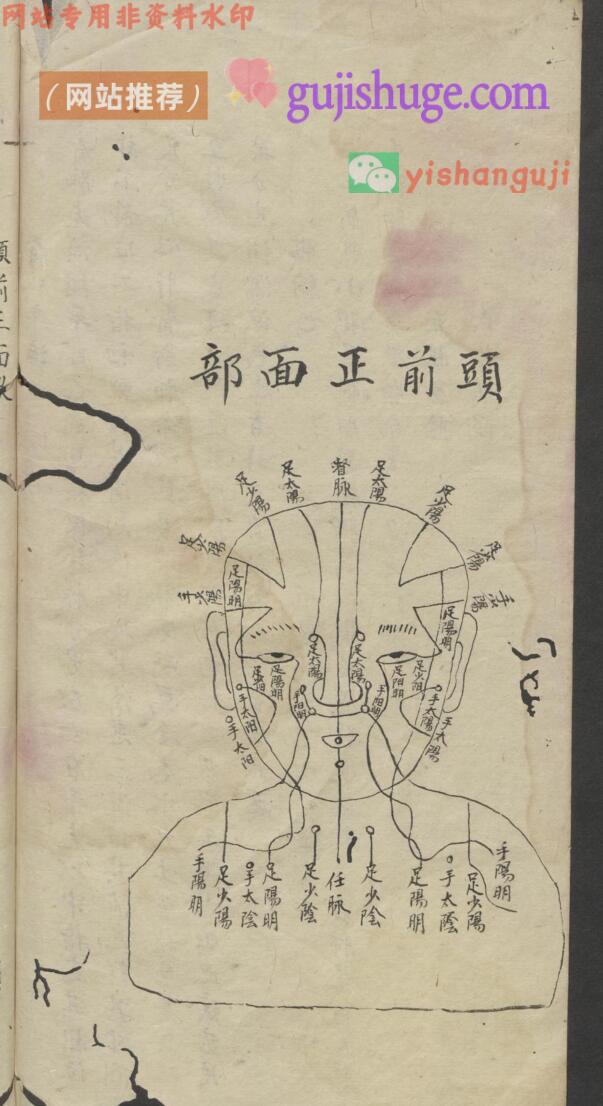 网站专用非资料水印
(网站推荐)
gujishuge.com
yishanguji
頭前正面
頭前正面部
足少陽
足太陽
督脉
足太陽
足少陽
足少陽
足少陽
手少陽
手少陽
足陽明
足陽明
足太陽
足太陽
足陽明
足少阳
足阳明
手阳明
手阳明
手太阳
手太陽
手太阳
手太陽
手陽明
足少陽
手太陰
足陽明
足少蔭
任脉
足少陰
足陽明
手太蔭
足少陽
手陽明